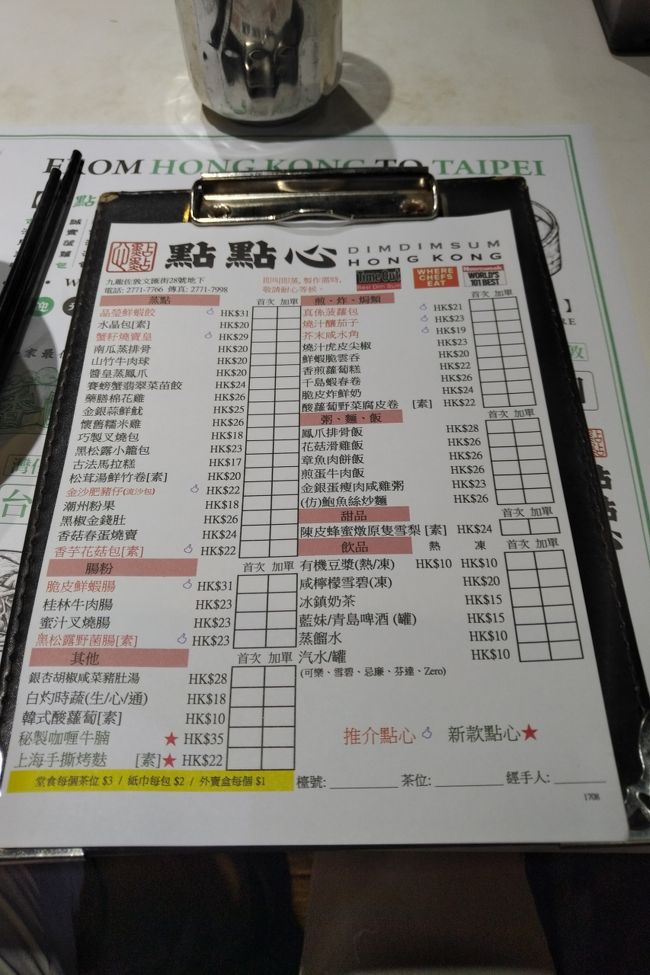 FROM HONG KONG TO TAIPEI
點點心 DIMDIMSUM HONG KONG
九龍佐敦文匯街28號地下
電話: 2771-7766 傳真: 2771-7998
即叫即蒸, 製作需時,
敬請耐心等候
Time Out
Best Dim Sum
WHERE CHEFS EAT
Newsweek
WORLD'S 101 BEST
蒸點 首次 加單
晶瑩鮮蝦餃 HK$31
水晶包[素] HK$20
蟹籽燒賣皇 HK$29
南瓜蒸排骨 HK$20
山竹牛肉球 HK$20
醬皇蒸鳳爪 HK$20
賽螃蟹翡翠菜苗餃 HK$24
藥膳棉花雞 HK$26
金銀蒜鮮魷 HK$25
懷舊糯米雞 HK$26
巧製叉燒包 HK$18
黑松露小籠包 HK$23
古法馬拉糕 HK$17
松茸湯鮮竹卷[素] HK$20
金沙肥豬仔(流沙包) HK$22
潮州粉果 HK$18
黑椒金錢肚 HK$26
香菇春蛋燒賣 HK$24
香芋花菇包[素] HK$22
腸粉 首次 加單
脆皮鮮蝦腸 HK$31
桂林牛肉腸 HK$23
蜜汁叉燒腸 HK$23
黑松露野菌腸[素] HK$23
其他 首次 加單
銀杏胡椒咸菜豬肚湯 HK$28
白灼時蔬(生/心/通) HK$18
韓式酸蘿蔔[素] HK$10
秘製咖喱牛腩 ★ HK$35
上海手撕烤麩 [素]★ HK$22
堂食每個茶位 $3 / 紙巾每包 $2 / 外賣盒每個 $1
煎、炸、焗類 首次 加單
真係菠蘿包 HK$21
燒汁釀茄子 HK$23
芥末咸水角 HK$19
燒汁虎皮尖椒 HK$23
鮮蝦脆雲吞 HK$20
香煎蘿蔔糕 HK$22
千島蝦春卷 HK$26
脆皮炸鮮奶 HK$24
酸蘿蔔野菜腐皮卷 [素] HK$22
粥、麵、飯 首次 加單
鳳爪排骨飯 HK$28
花菇滑雞飯 HK$26
章魚肉餅飯 HK$26
煎蛋牛肉飯 HK$26
金銀蛋瘦肉咸雞粥 HK$23
(仿)鮑魚絲炒麵 HK$26
甜品 首次 加單
陳皮蜂蜜燉原隻雪梨 [素] HK$24
飲品 熱 凍 首次 加單
有機豆漿(熱/凍) HK$10 HK$10
咸檸檬雪碧(凍) HK$20
冰鎮奶茶 HK$15
藍妹/青島啤酒 (罐) HK$15
蒸餾水 HK$10
汽水/罐 HK$10
(可樂、雪碧、忌廉、芬達、Zero)
推介點心 新款點心★
檯號: 茶位: 經手人:
1708